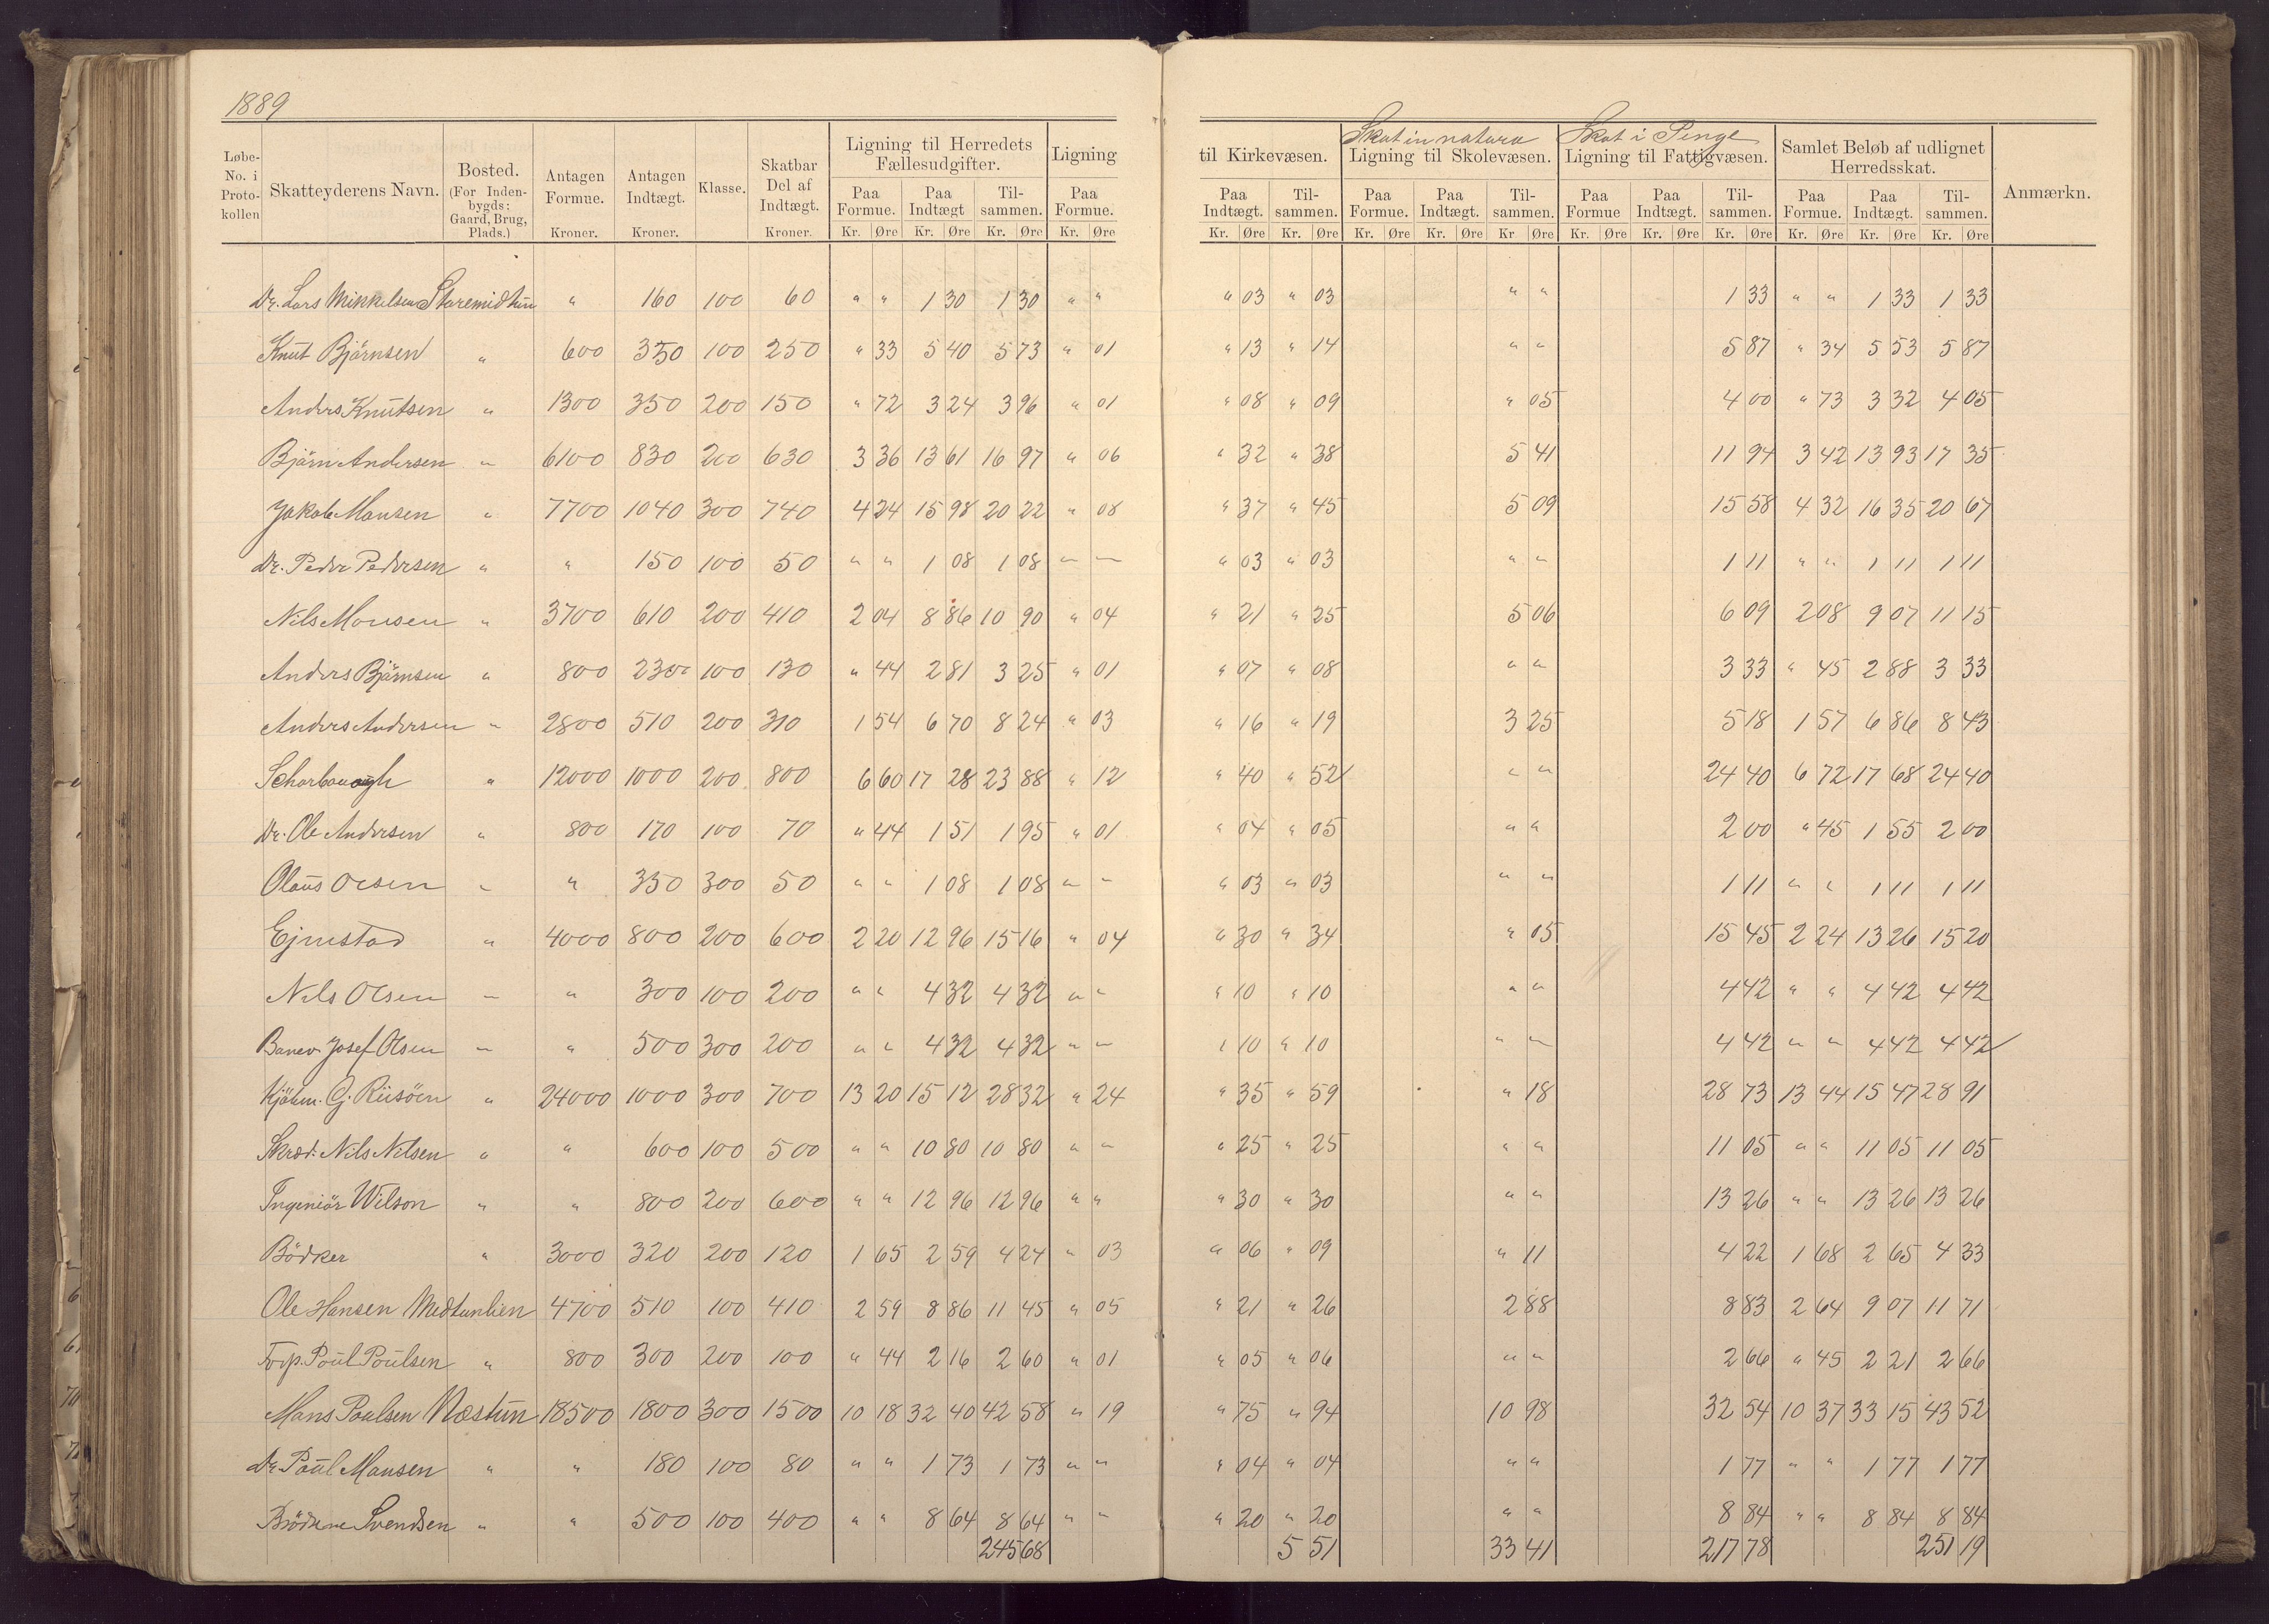 1889
Løbe-No. i Proto-kollen | Skatteyderens Navn. | Bosted. (For Inden-bygds: Gaard, Brug, Plads.) | Antagen Formue. Kroner. | Antagen Indtægt. Kroner. | Klasse. | Skatbar Del af Indtægt. Kroner. | Ligning til Herredets Fællesudgifter. Paa Formue. Kr. Øre Paa Indtægt Kr. Øre Til-sammen. Kr. Øre | Ligning Paa Formue. Kr. Øre | til Kirkevæsen. Paa Indtægt. Kr. Øre Til-sammen. Kr. Øre | Skat in natura Ligning til Skolevæsen. Paa Formue. Kr. Øre Paa Indtægt. Kr. Øre Til-sammen. Kr Øre | Skat i Penge Ligning til Fattigvæsen. Paa Formue Kr. Øre Paa Indtægt. Kr. Øre Til-sammen. Kr. Øre | Samlet Beløb af udlignet Herredsskat. Paa Formue. Kr. Øre Paa Indtægt. Kr. Øre Til-sammen. Kr. Øre | Anmærkn.
Dr. Lars Mikkelsen Staremidtun " 160 100 60 " " 1 30 1 30 " " " 03 " 03 " " 1 33 " " 1 33 1 33
Knut Björnsen " 600 350 100 250 " 33 5 40 5 73 " 01 " 13 " 14 " " 5 87 " 34 5 53 5 87
Anders Knutsen " 1300 350 200 150 " 72 3 24 3 96 " 01 " 08 " 09 " 05 4 00 " 73 3 32 4 05
Björn Andersen " 6100 830 200 630 3 36 13 61 16 97 " 06 " 32 " 38 5 41 11 94 3 42 13 93 17 35
Jakob Monsen " 7700 1040 300 740 4 24 15 98 20 22 " 08 " 37 " 45 5 09 15 58 4 32 16 35 20 67
Dr. Peder Pedersen " " 150 100 50 " " 1 08 1 08 " " " 03 " 03 " " 1 11 " " 1 11 1 11
Nils Monsen " 3700 610 200 410 2 04 8 86 10 90 " 04 " 21 " 25 5 06 6 09 2 08 9 07 11 15
Anders Björnsen " 800 230 100 130 " 44 2 81 3 25 " 01 " 07 " 08 " " 3 33 " 45 2 88 3 33
Anders Andersen " 2800 510 200 310 1 54 6 70 8 24 " 03 " 16 " 19 3 25 5 18 1 57 6 86 8 43
" 12000 1000 200 800 6 60 17 28 23 88 " 12 " 40 " 52 " " 24 40 6 72 17 68 24 40
Dr. Ole Andersen " 800 170 100 70 " 44 1 51 1 95 " 01 " 04 " 05 " " 2 00 " 45 1 55 2 00
Olaus Olsen " " 350 300 50 " " 1 08 1 08 " " " 03 " 03 " " 1 11 " " 1 11 1 11
Ejmstad " 4000 800 200 600 2 20 12 96 15 16 " 04 " 30 " 34 " 05 15 45 2 24 13 26 15 20
Nils Olsen " " 300 100 200 " " 4 32 4 32 " " " 10 " 10 " " 4 42 " " 4 42 4 42
Banev. Josef Olsen " " 500 300 200 " " 4 32 4 32 " " " 10 " 10 " " 4 42 " " 4 42 4 42
Kjöbm. G. Riisöen " 24000 1000 300 700 13 20 15 12 28 32 " 24 " 35 " 59 " 18 28 73 13 44 15 47 28 91
Skræd. Nils Nilsen " " 600 100 500 " " 10 80 10 80 " " " 25 " 25 " " 11 05 " " 11 05 11 05
Ingeniör Wilson " " 800 200 600 " " 12 96 12 96 " " " 30 " 30 " " 13 26 " " 13 26 13 26
Bödker " 3000 320 200 120 1 65 2 59 4 24 " 03 " 06 " 09 " 11 4 22 1 68 2 65 4 33
Ole Hansen Midtunlien 4700 510 100 410 2 59 8 86 11 45 " 05 " 21 " 26 2 88 8 83 2 64 9 07 11 71
Forp. Poul Poulsen " 800 300 200 100 " 44 2 16 2 60 " 01 " 05 " 06 " " 2 66 " 45 2 21 2 66
Mons Poulsen Nestun 18500 1800 300 1500 10 18 32 40 42 58 " 19 " 75 " 94 10 98 32 54 10 37 33 15 43 52
Dr. Poul Monsen " " 180 100 80 " " 1 73 1 73 " " " 04 " 04 " " 1 77 " " 1 77 1 77
Brödrene Svendsen " " 500 100 400 " " 8 64 8 64 " " " 20 " 20 " " 8 84 " " 8 84 8 84
245 68 5 51 33 41 217 78 251 19